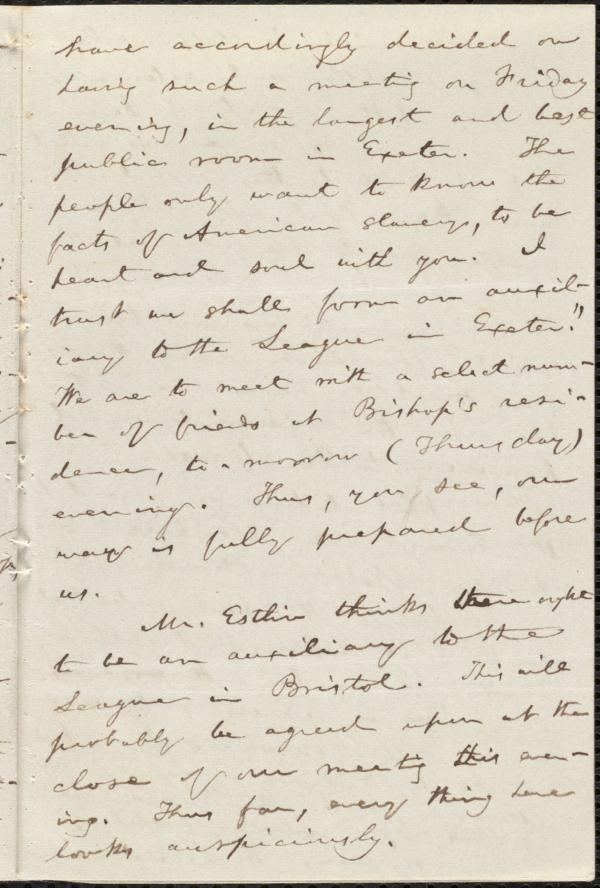 have accordingly decided on
having such a meeting on Friday
evening, in the longest and best
public room in Exeter. The
people only want to know the
facts of American slavery, to be
heart and soul with you. I
trust we shall form an auxil-
iary to the League in Exeter."
We are to meet with a select num-
ber of friends at Bishop's resi-
dence, to-morrow (Thursday)
evening. Thus, you see, our
way is fully prepared before
us.
Mr. Estlin thinks there ought
to be an auxiliary to the
League in Bristol. This will
probably be agreed upon at the
close of our meeting this even-
ing. Thus far, every thing here
looks auspiciously.